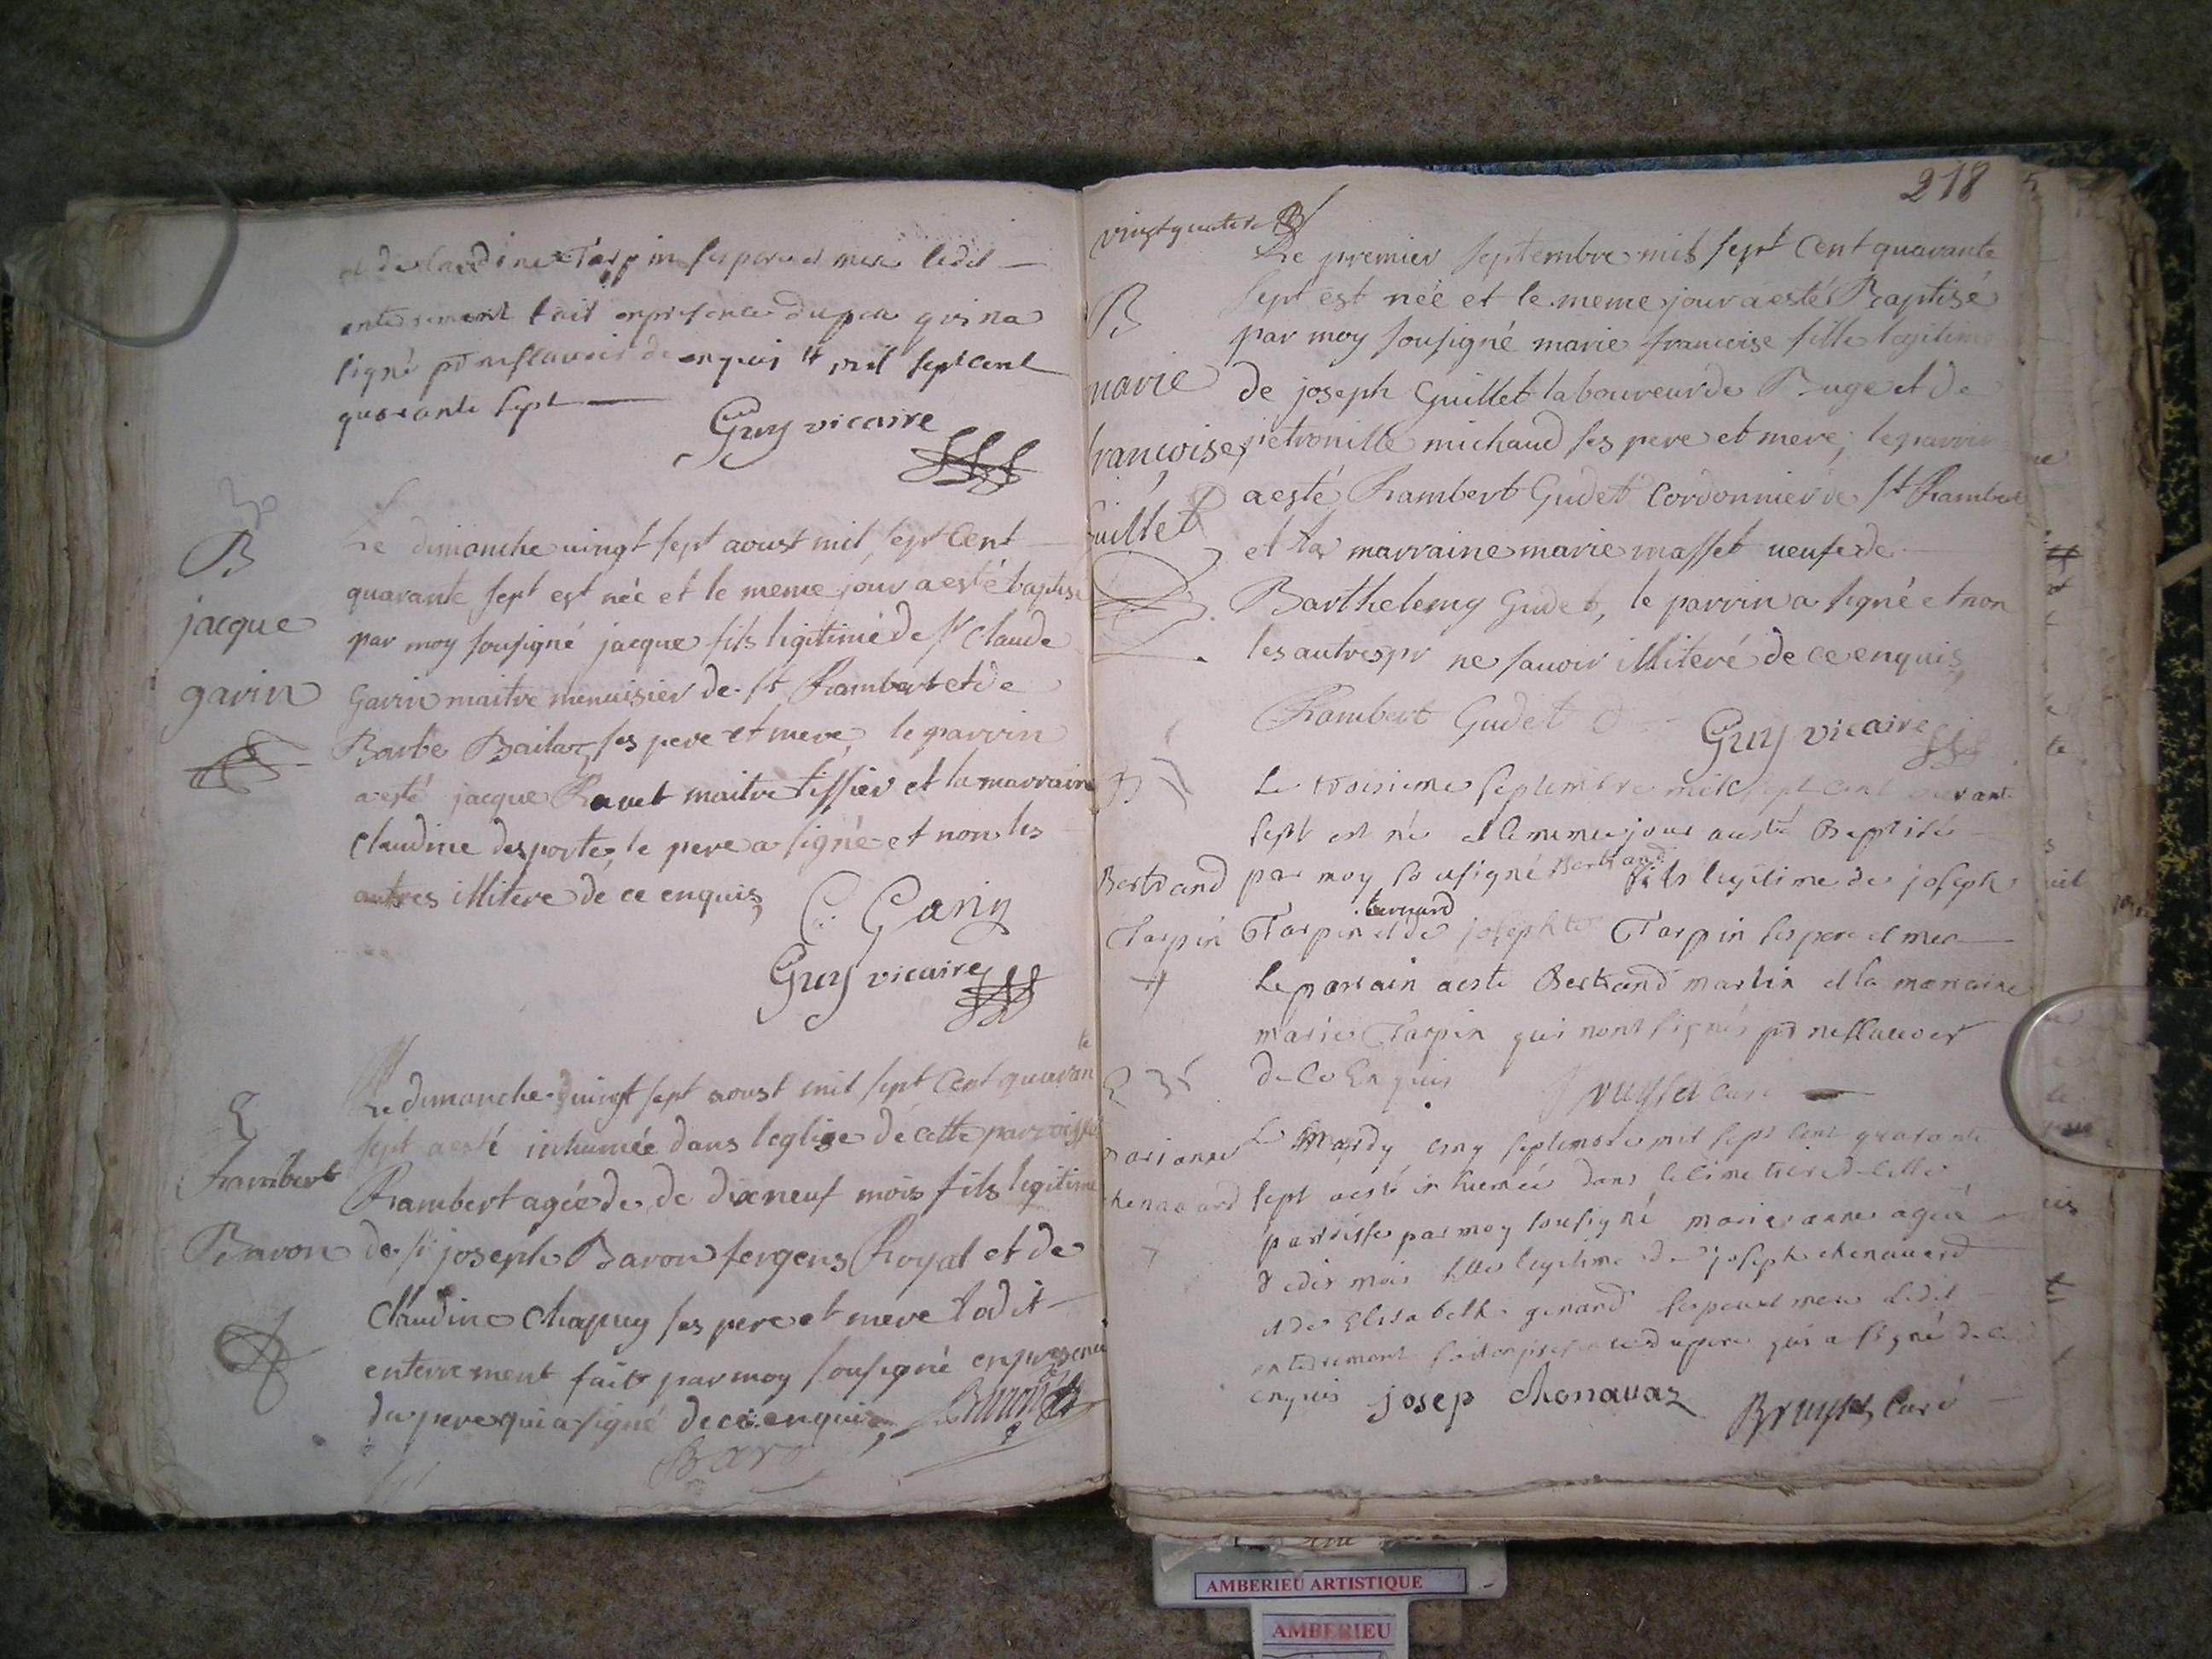 et de Claudine Tarpin ses pere et mere ledit
enterrement fait en presence du pere qui na
signé pr ne scavoir de enquis mil sept cent
quarante sept
Guy vicaire
B
jacque
garin
Le dimanche vingt sept aoust mil sept cent
quarante sept est née et le meme jour a esté baptisé
par moy sousigné jacque fils legitime de sr claude
Garin maitre menuisier de st Rambert et de
Barbe Bailar ses pere et mere, le parrin
a esté jacque Ravet maitre tissier et la marraine
claudine desporte, le pere a signé et non les
autres illitere de ce enquis,
C. Garin
Guy vicaire
Rambert
Baron
Le dimanche vingt sept aoust mil sept cent quarante
sept a esté inhumée dans leglise de cette parroisse
Rambert agée de de dixneuf mois fils legitime
de sr joseph Baron sergens Royal et de
Claudine Chapuy ses pere et mere ledit
enterrement fait par moy sousigné en presence
du pere qui a signé de ce enquis, Baron
Baro
218
vingtquatre
B
marie
francoise
Guillet
Le premier septembre mil sept cent quarante
sept est née et le meme jour a esté Baptisé
par moy sousigné marie francoise fille legitime
de joseph Guillet laboureur de Buge et de
petronille michaud ses pere et mere, le parrin
a esté Rambert Gudet Cordonnier de st Rambert
et la marraine marie masset veufe de
Barthelemy Gudet, le parrin a signé et non
les autres pr ne savoir illiteré de ce enquis,
Rambert Gudet
Guy vicaire
B
Bertrand
Tarpin
Le troisieme septembre mil sept cent quarante
sept est né et le meme jour a esté Baptisé
par moy sousigné Bertrand fils legitime de joseph
Tarpin bernard et de josephte Tarpin ses pere et mere
Le parrain a esté Bertrand martin et la marraine
marie Tarpin qui nont signés pr ne scavoir
de ce Enquis
Bruyset curé
marianne
chenavard
Le Mardy cinq septembre mil sept cent quarante
sept a esté inhumée dans le cimetiere de cette
parroisse par moy sousigné marie anne agée
de dix mois fille legitime de joseph chenavard
et de Elisabeth genand ses pere et mere ledit
enterrement fait en presence du pere qui a signé de ce
enquis
josep chonavaz
Bruyset Curé
AMBERIEU ARTISTIQUE
AMBERIEU